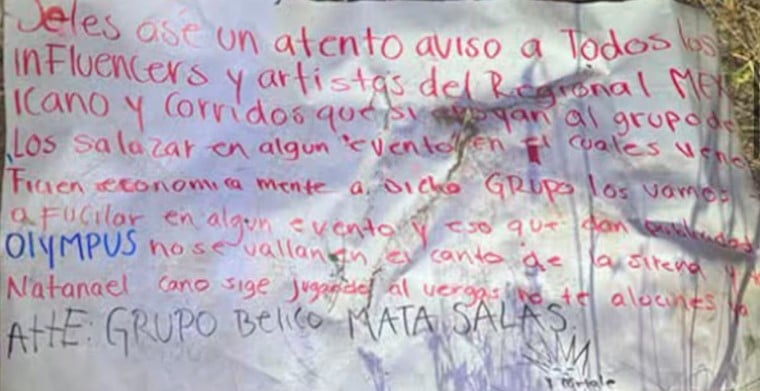 Se les ase un atento aviso a Todos los
inFluencers y artistas del Regional MEX
icano y corridos que si apoyan al grupo de
Los salazar en algun evento en el cuales vene
Ficien economica mente a dicho GRUPO los vamos
a Fucilar en algun evento y eso que dan publicidad
OLYMPUS no se vallan en el canto de la sirena y
Natanael cano sige jugando al vergas no te alucines
Atte: GRUPO Belico MATA SALAS.